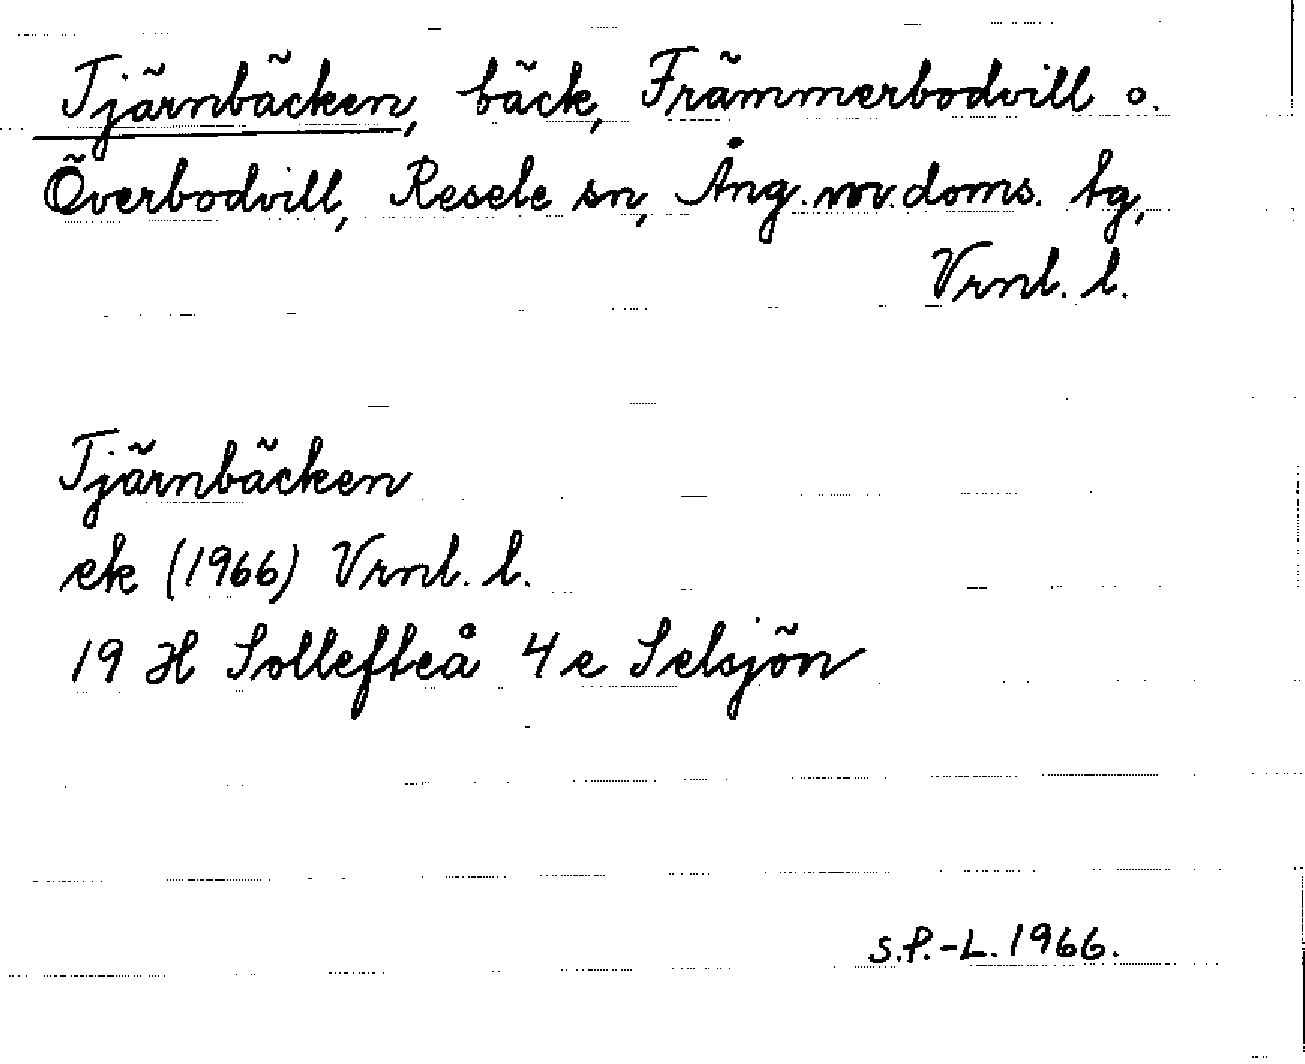 Tjärnbäcken, bäck, Främmerbodvill o.
Överbodvill, Resele sn, Ång. nv. doms. tg,
Vrnl. l.
Tjärnbäcken
ek (1966) Vrnl. l.
19 H Sollefteå 4 e Selsjön
S.P.-L. 1966.